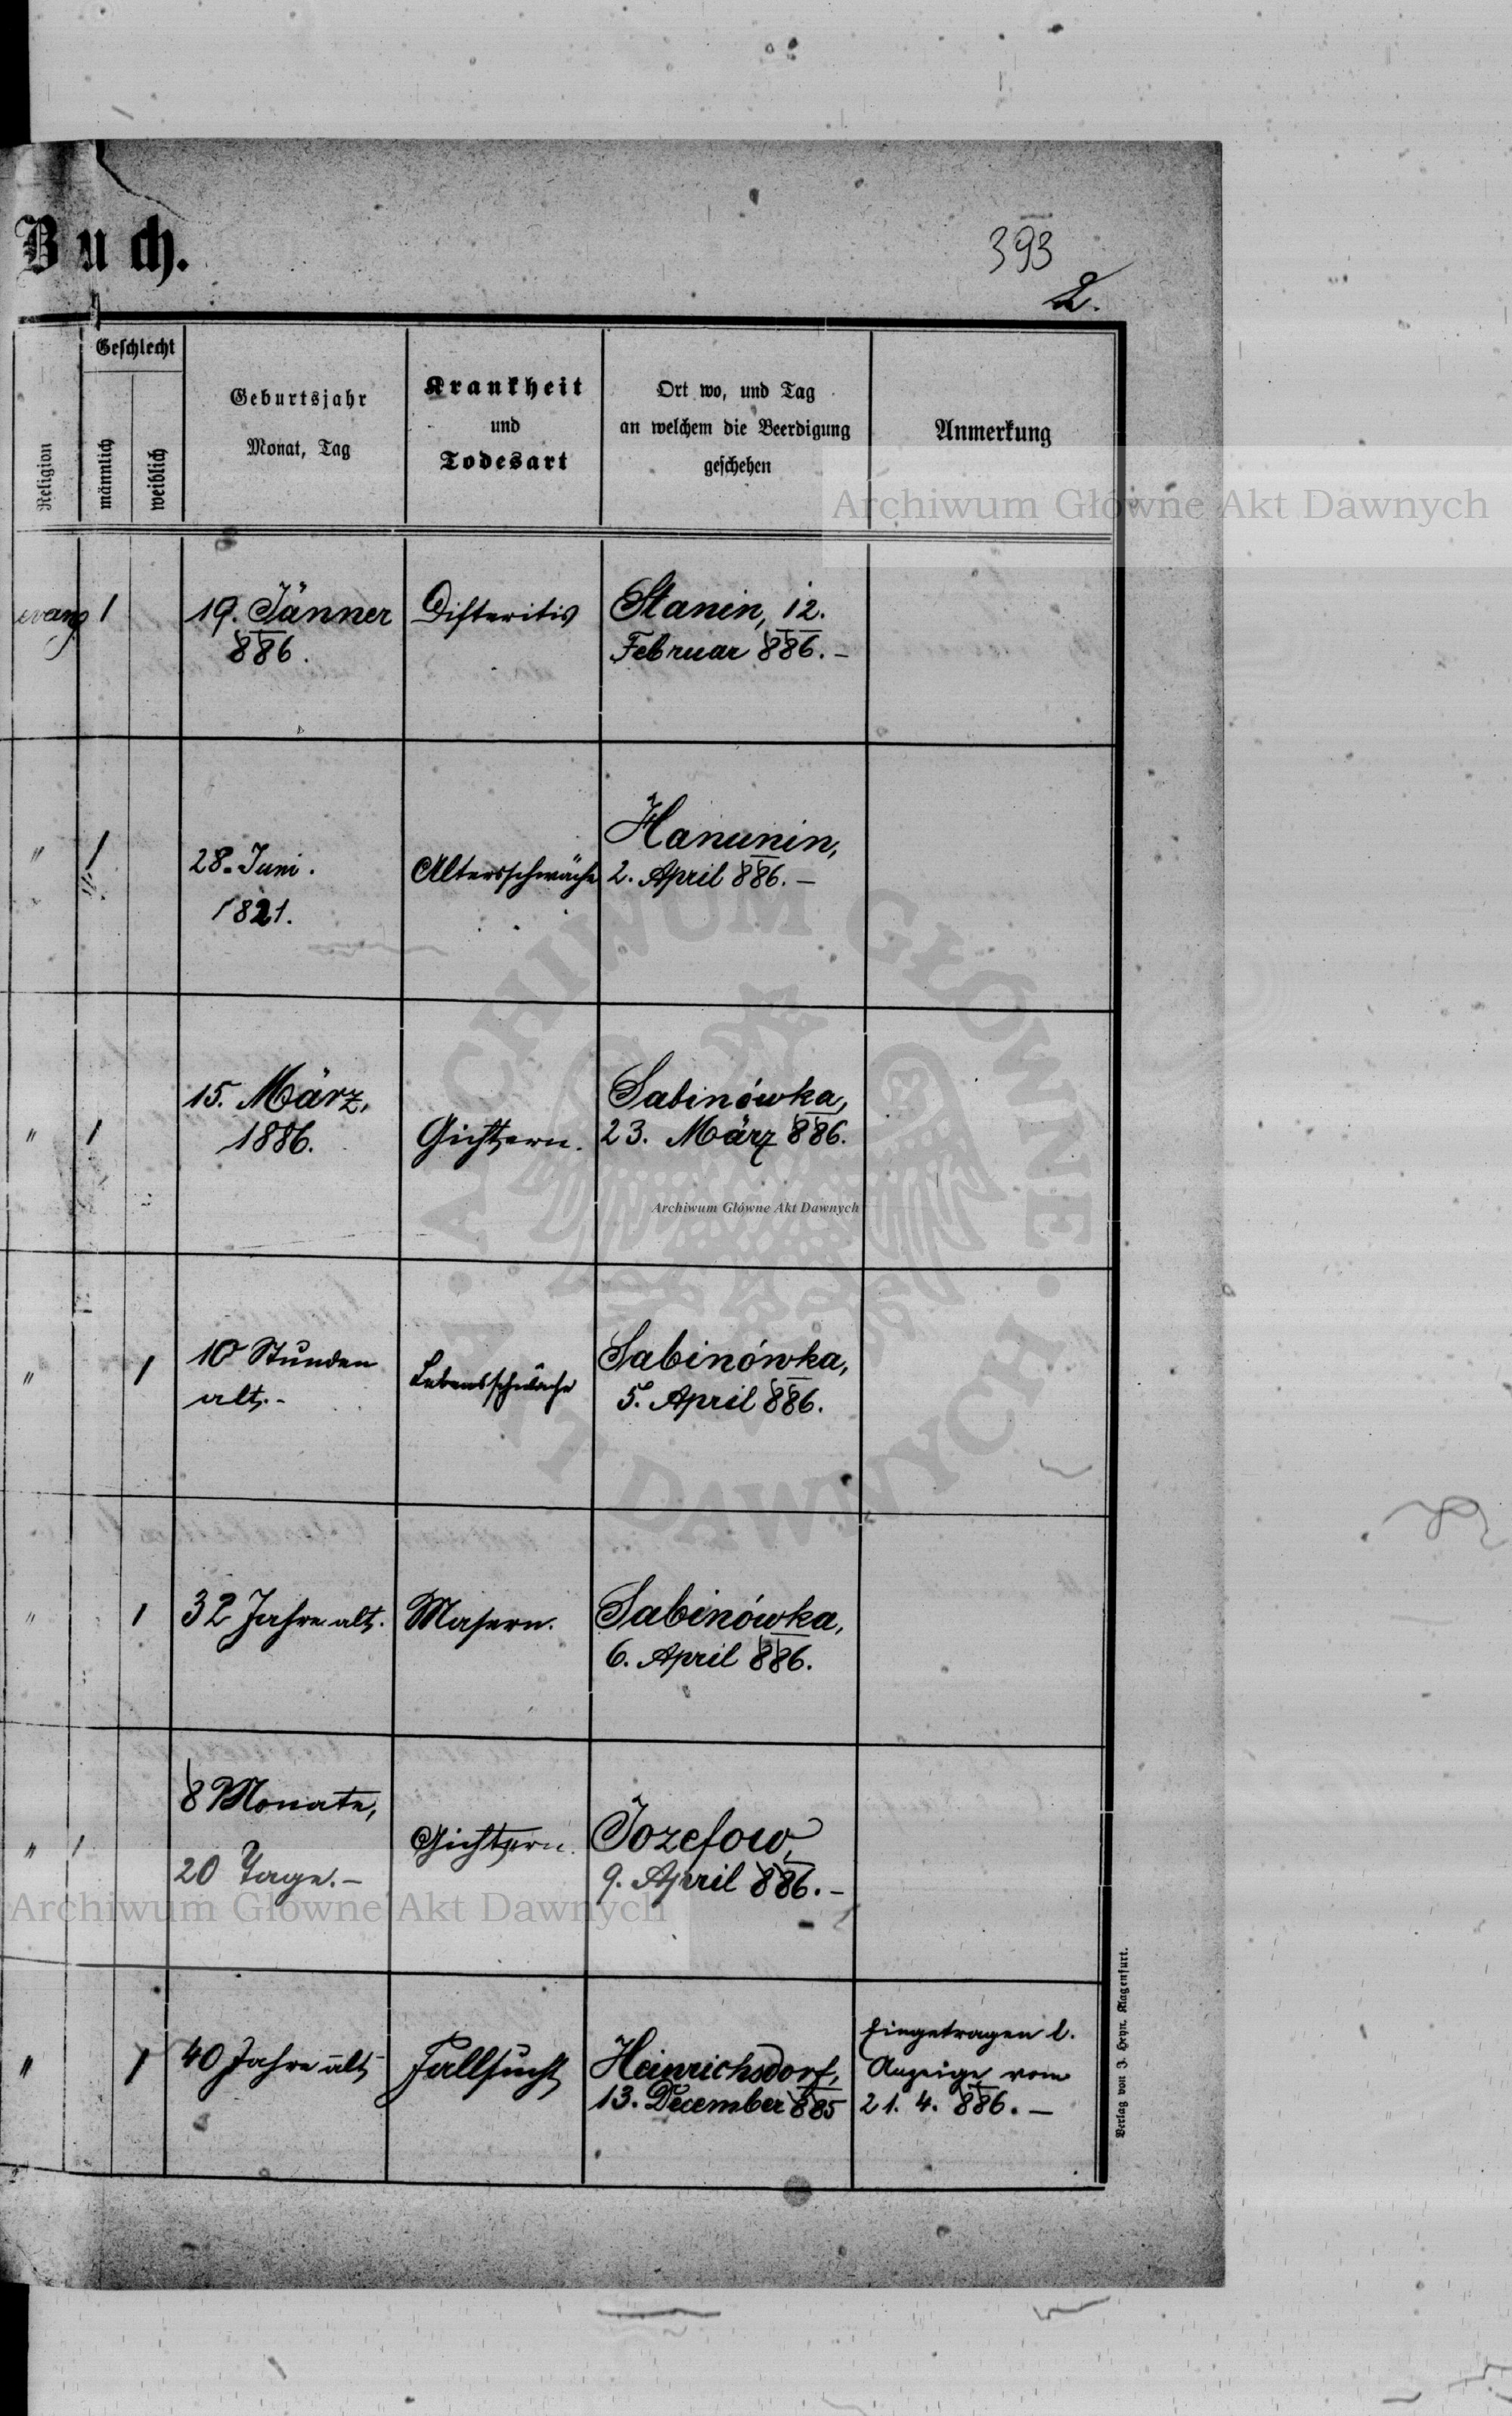 Buch.
393
2.
Religion
Geschlecht
männlich
weiblich
Geburtsjahr
Monat, Tag
Krankheit
und
Todesart
Ort wo, und Tag
an welchem die Beerdigung
geschehen
Anmerkung
Archiwum Główne Akt Dawnych
evang 1 19. Jänner Difteritis Stanin, 12.
886. Februar 886. –
Hanunin,
" 1 28. Juni. Altersschwäche 2. April 886. –
1821.
15. März, Sabinówka,
" 1 1886. Gichtern. 23. März 886.
Archiwum Główne Akt Dawnych
ARCHIWUM GŁÓWNE
AKT DAWNYCH
" 1 10 Stunden Lebensschwäche Sabinówka,
alt. – 5. April 886.
" 1 32 Jahre alt. Masern. Sabinówka,
6. April 886.
8 Monate,
" 1 Gichtern. Jozefow,
20 Tage. – 9. April 886. –
Archiwum Główne Akt Dawnych
Eingetragen l.
" 1 40 Jahre alt Fallsucht Heinrichsdorf, Anzeige vom
13. December 885 21. 4. 886. –
Verlag von J. Heyn. Klagenfurt.